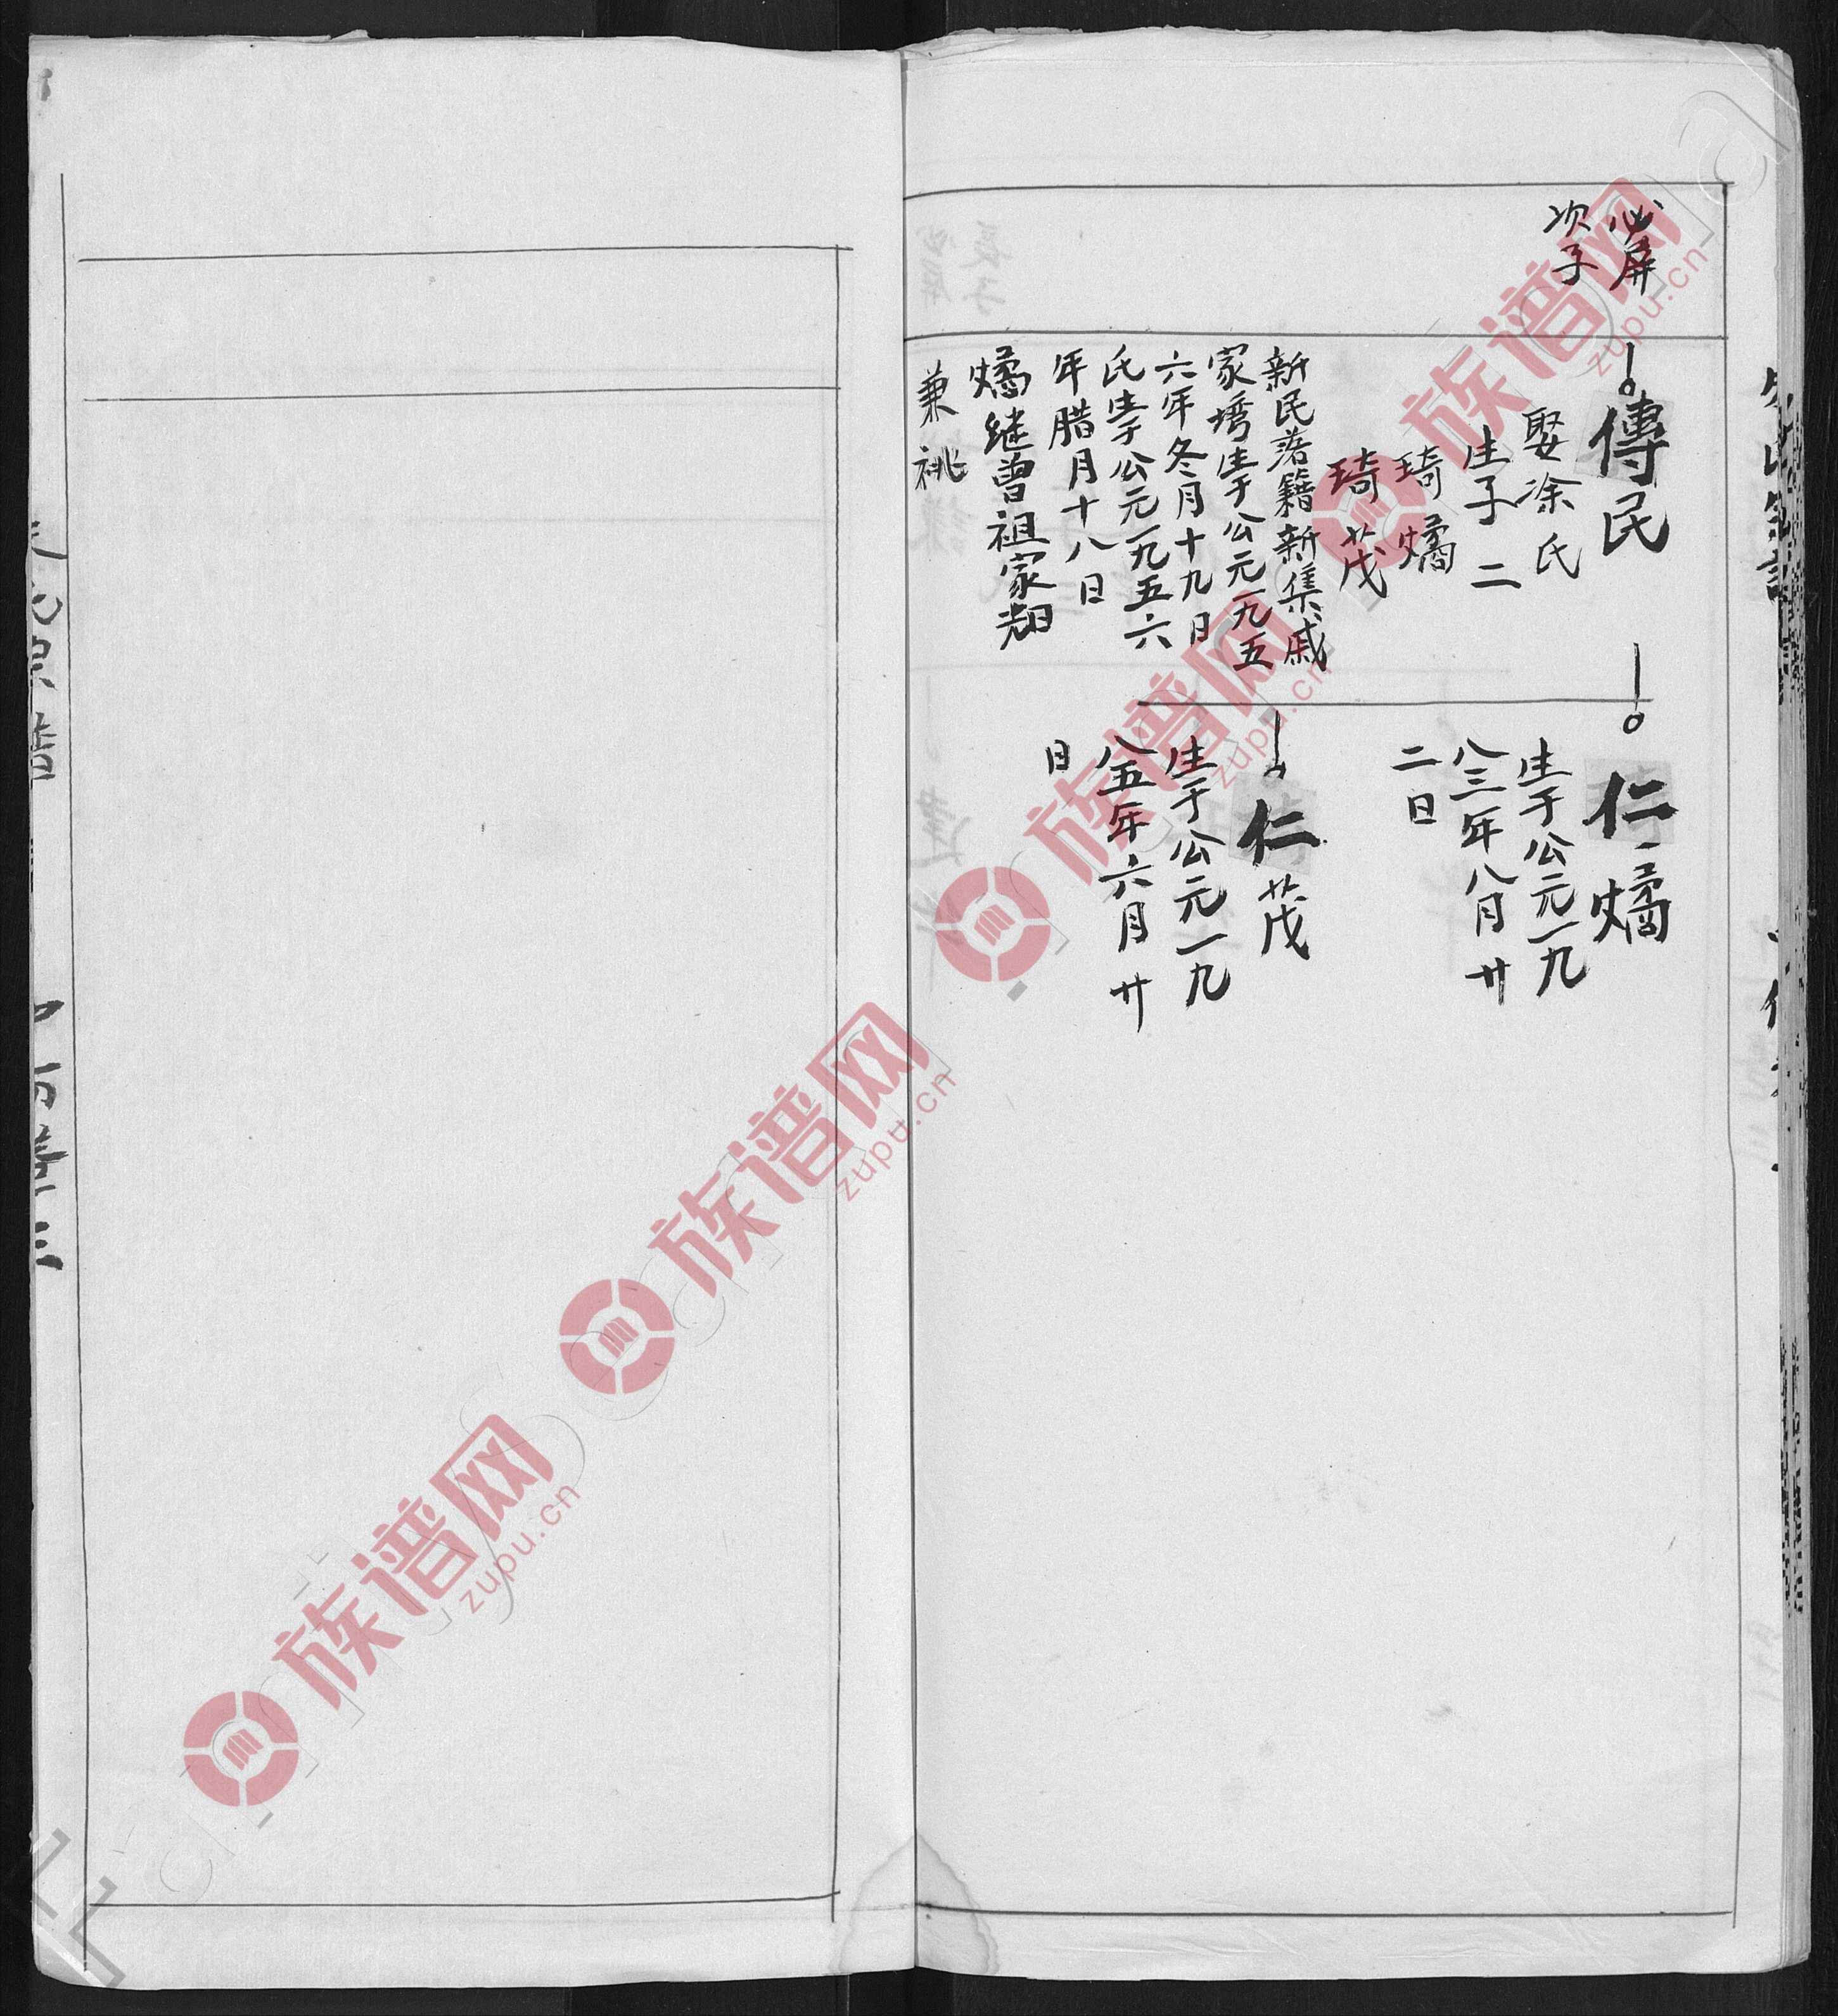 必屏
次子
傳民
娶涂氏
生子二
琦燏
琦茂
新民落籍新集戚
家塆生于公元一九五
六年冬月十九日
氏生于公元一九五六
年腊月十八日
燏继曾祖家翔
兼祧
仁燏
生于公元一九
八三年八月廿
二日
仁茂
生于公元一九
八五年六月廿
日
族谱网
zupu.cn
族谱网
zupu.cn
族谱网
zupu.cn
族谱网
zupu.cn